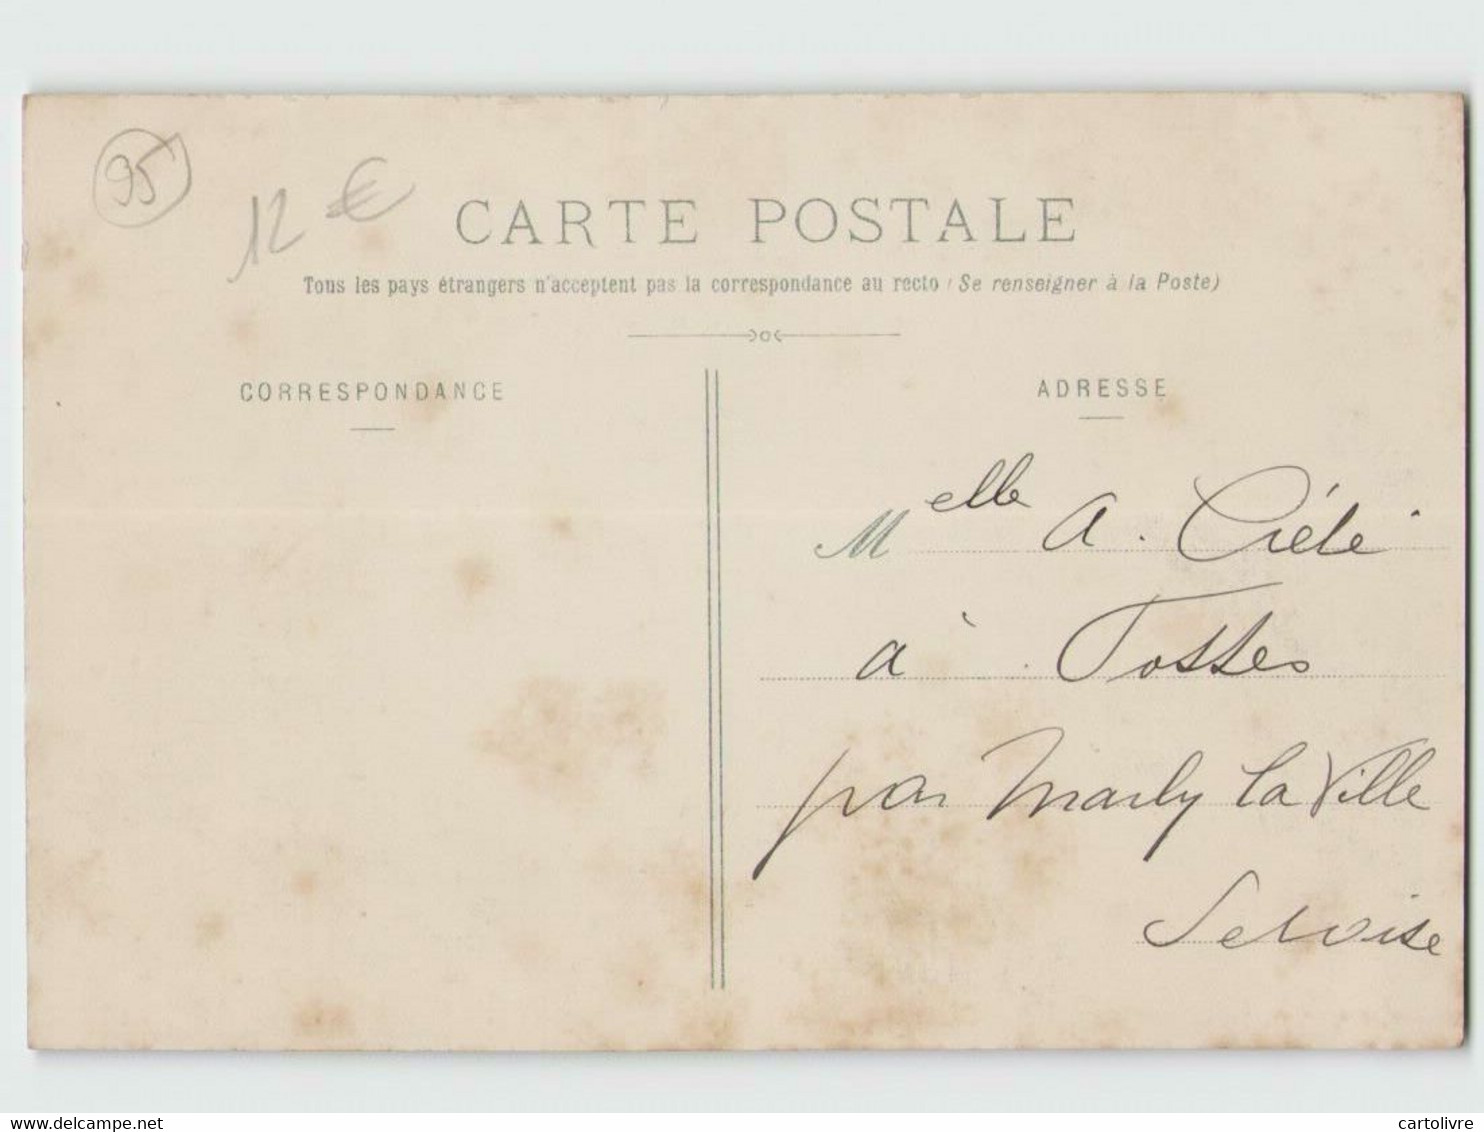 95
12 €
CARTE POSTALE
Tous les pays étrangers n'acceptent pas la correspondance au recto (Se renseigner à la Poste)
CORRESPONDANCE
ADRESSE
Melle A. Ciété
à Fosses
par Marly la Ville
Setoise
cartolivre